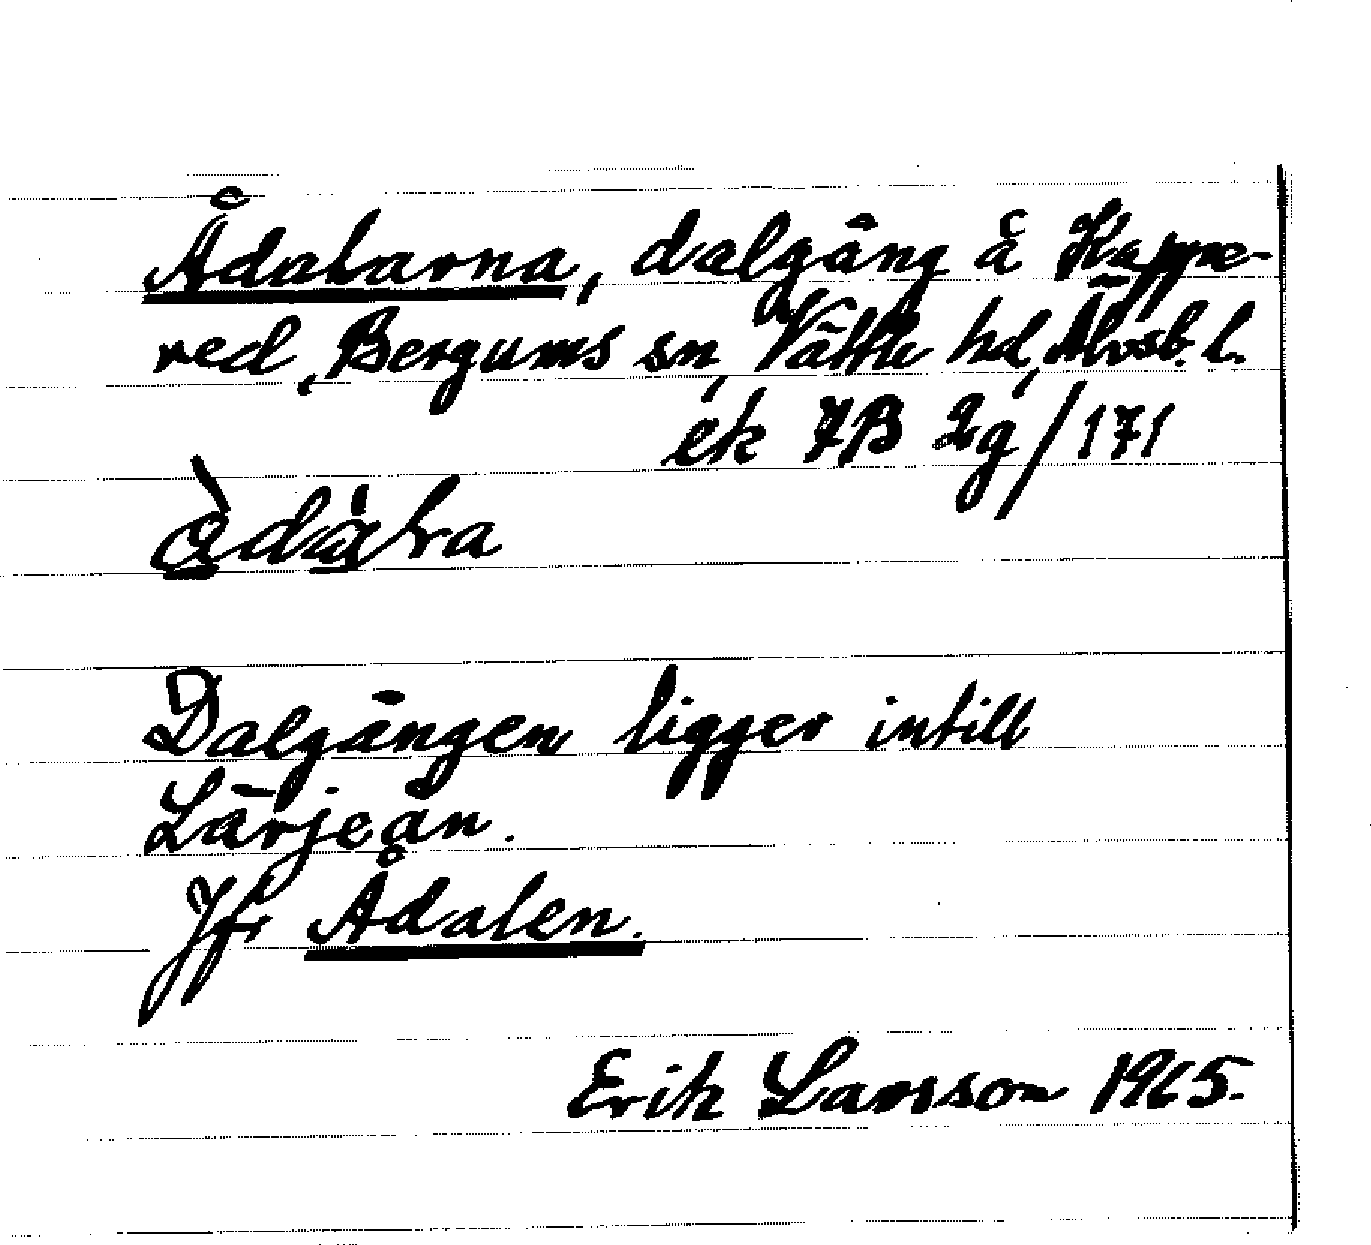 Ådalarna, dalgång å Kappe-
red, Bergums sn, Vättle hd, Älvsb. l.
ek 7B 2g/171
Dalgången ligger intill
Lärjeån.
Jfr Ådalen.
Erik Larsson 1965.